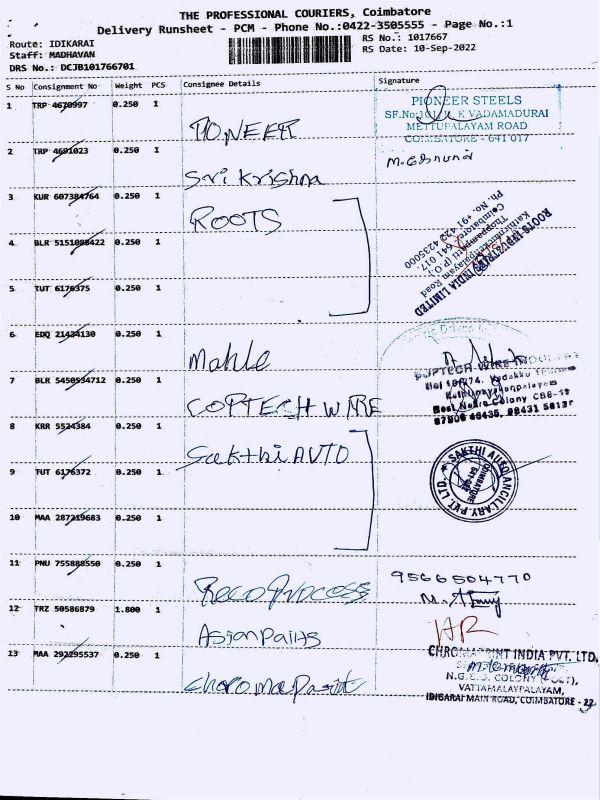 THE PROFESSIONAL COURIERS, Coimbatore
Delivery Runsheet - PCM - Phone No.:0422-3505555 - Page No.:1
Route: IDIKARAI
RS No.: 1017667
Staff: MADHAVAN
RS Date: 10-Sep-2022
DRS No.: DCJB101766701
S No Consignment No Weight PCS Consignee Details Signature
1 TRP 4670997 0.250 1
PIONEER STEELS
SF.No:101/1, K VADAMADURAI
METTUPALAYAM ROAD
COIMBATORE - 641 017
PIONEER
2 TRP 4691023 0.250 1
Sri Krishna
3 KUR 607384764 0.250 1
ROOTS
ROOTS INDUSTRIES INDIA LIMITED
Kathirnaickenpalayam Road
Thoppampatti (P.O.)
Coimbatore - 641 017.
Ph. No. +91 422 4235000
4 BLR 5151088422 0.250 1
5 TUT 6176375 0.250 1
6 EDQ 21434130 0.250 1
Mahle
7 BLR 5450534712 0.250 1
COPTECH WIRE
8 KRR 5524384 0.250 1
Sakthi AUTO
SAKTHI AUTO ANCILLARY PVT. LTD.
COIMBATORE
9 TUT 6176372 0.250 1
10 MAA 287219683 0.250 1
11 PNU 755888550 0.250 1
Reco Process
9566504770
12 TRZ 50586879 1.800 1
Asian Paints
HR
13 MAA 292295537 0.250 1
Choromaprint
CHROMAPRINT INDIA PVT. LTD,
N.G.G.O. COLONY (POST),
VATTAMALAYPALAYAM,
IDIGARAI MAIN ROAD, COIMBATORE - 22